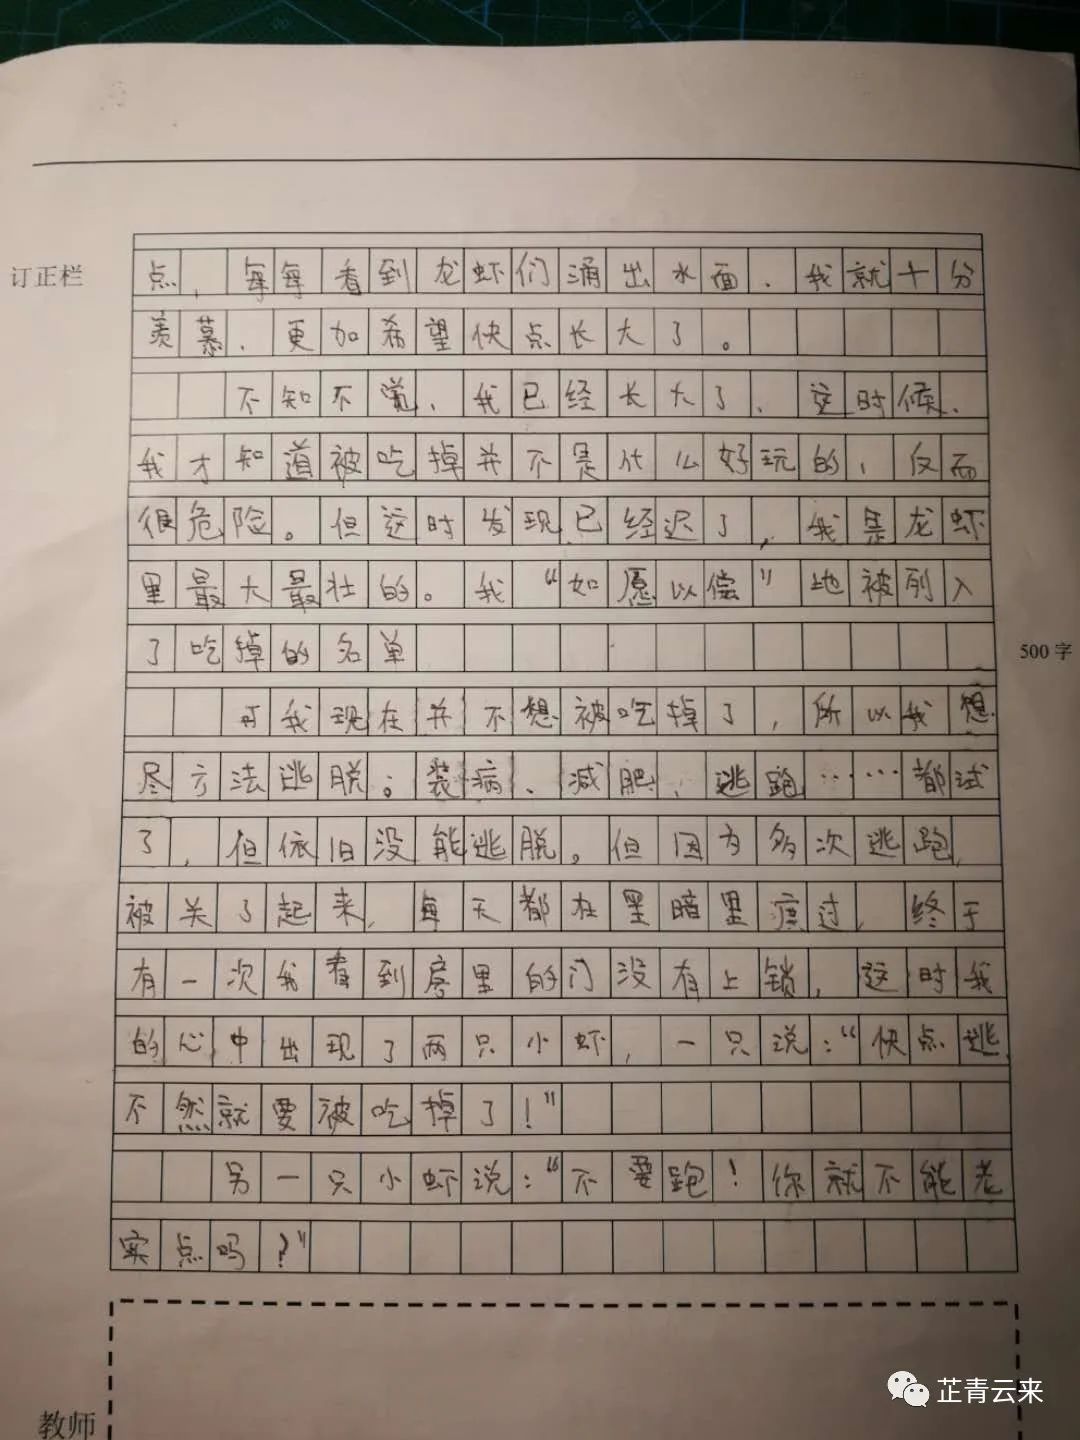 订正栏
点,每每看到龙虾们涌出水面、我就十分
羡慕、更加希望快点长大了。
不知不觉、我已经长大了、这时候、
我才知道被吃掉并不是什么好玩的,反而
很危险。但这时发现已经迟了,我是龙虾
里最大最壮的。我“如愿以偿”地被列入
了吃掉的名单
500字
可我现在并不想被吃掉了,所以我想
尽方法逃脱。装病、减肥、逃跑……都试
了,但依旧没能逃脱。但因为多次逃跑,
被关了起来,每天都在黑暗里度过,终于
有一次我看到房里的门没有上锁,这时我
的心中出现了两只小虾,一只说:“快点逃,
不然就要被吃掉了!”
另一只小虾说:“不要跑!你就不能老
实点吗?”
教师
芷青云来